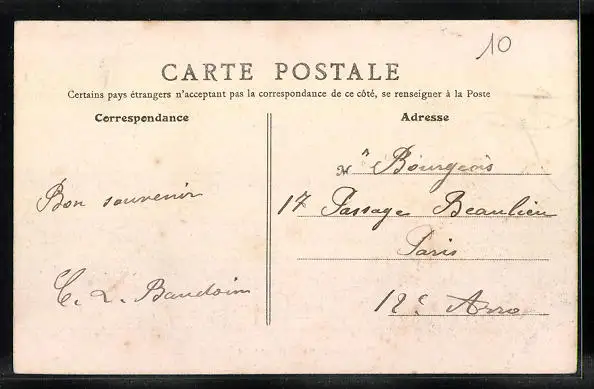 10
CARTE POSTALE
Certains pays étrangers n'acceptant pas la correspondance de ce côté, se renseigner à la Poste
Correspondance
Bon souvenir
C. L. Baudoin
Adresse
Bourgeois
17 Passage Beaulieu
Paris
12e Arro